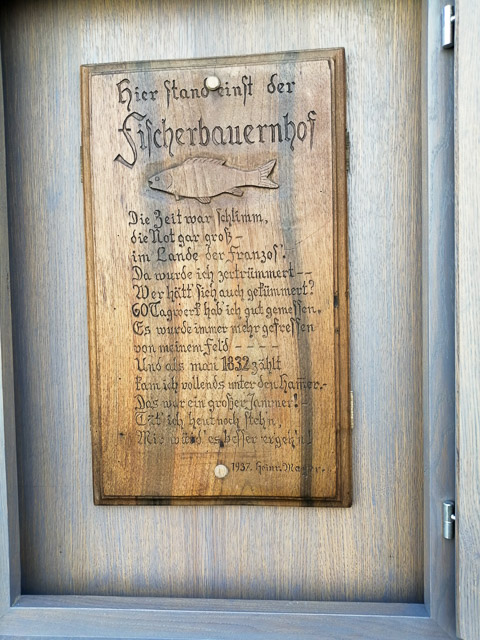 Hier stand einst der
Fischerbauernhof
Die Zeit war schlimm,
die Not gar groß –
im Lande der Franzos'.
Da wurde ich zertrümmert – –
Wer hätt' sich auch gekümmert?
60 Tagwerk hab' ich gut gemessen.
Es wurde immer mehr gefressen
von meinem Feld – – – –
Und als man 1832 zählt
kam ich vollends unter den Ham̄er. –
Das war ein großer Jammer! –
Tät' ich heut noch steh'n,
Mir würd' es besser ergeh'n.
1937. Heinr.